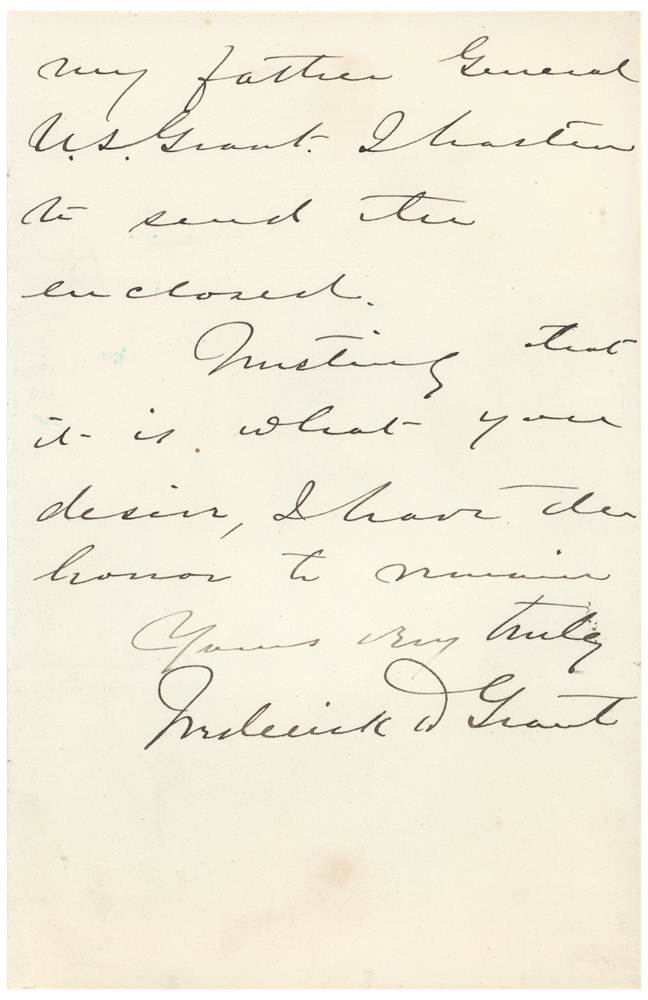 my father General
U.S. Grant. I hasten
to send the
enclosed.
Trusting that
it is what you
desire, I have the
honor to remain
Yours very truly
Frederick D Grant